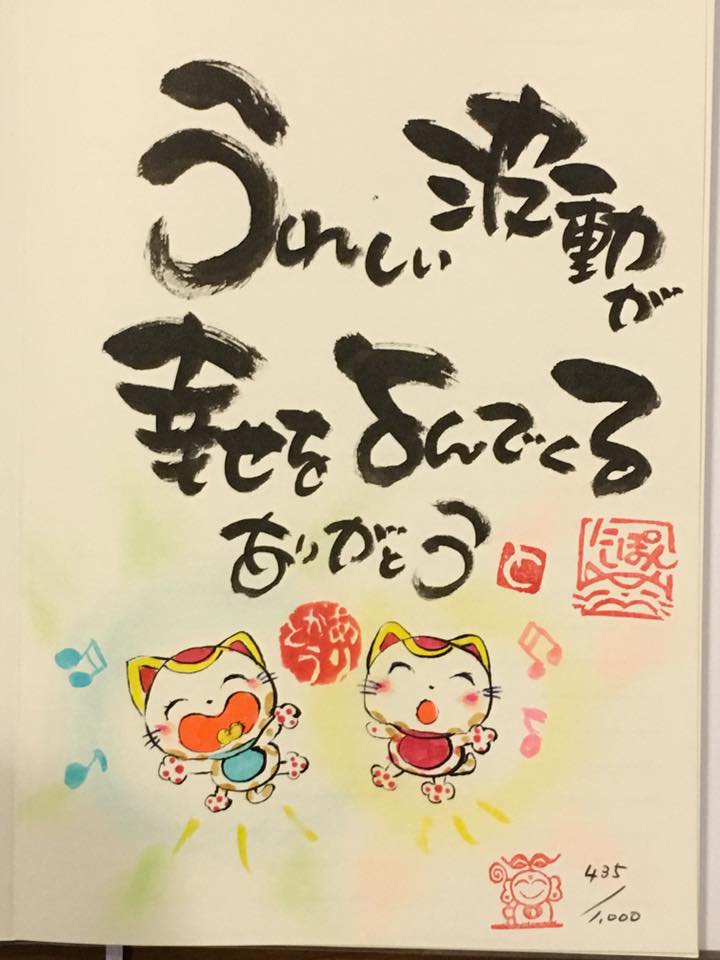 うれしい波動が
幸せをよんでくる
ありがとう
にしぽん
ありがとう
435/1,000